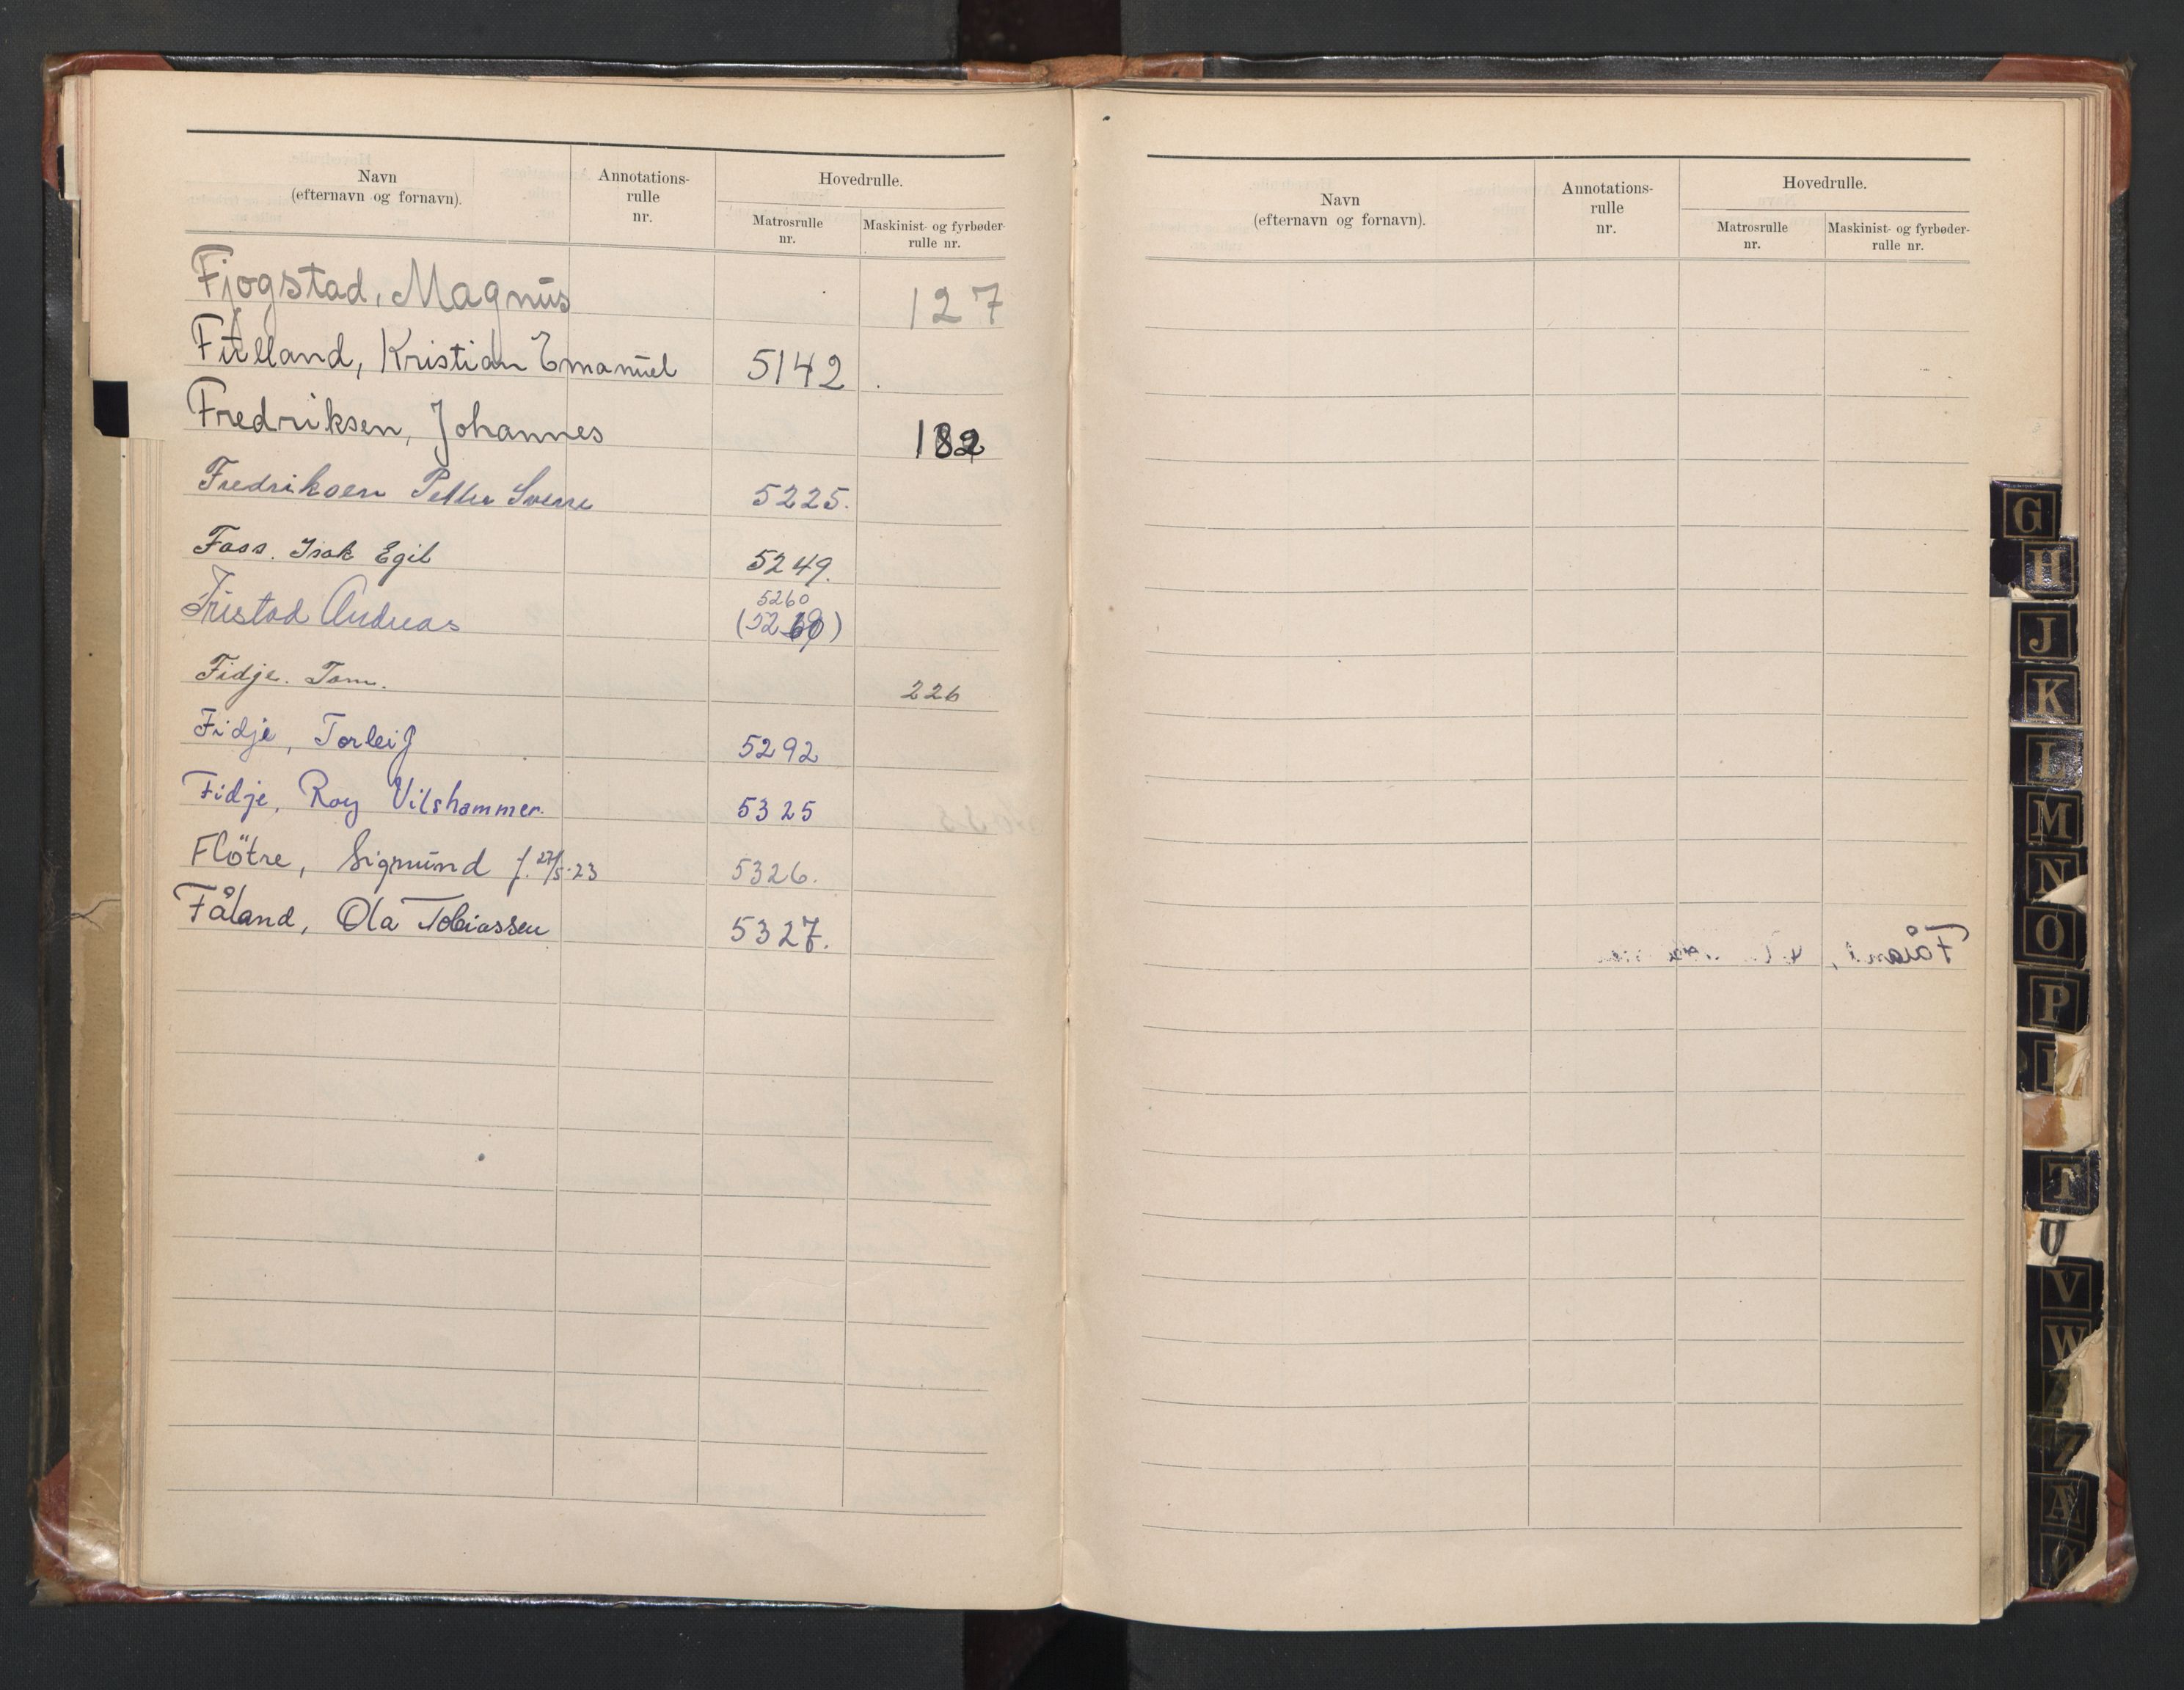 Navn
(efternavn og fornavn).
Annotations-
rulle
nr.
Hovedrulle.
Matrosrulle
nr.
Maskinist- og fyrbøder-
rulle nr.
Fjogstad, Magnus 127
Kristian Emanuel 5142
Fredriksen, Johannes 182
Fredriksen Petter Sverre 5225.
Foss. Isak Egil 5249.
5260
Andreas (5260)
Fidje. Tom. 226
Fidje, Torleif 5292
Fidje, Roy Vilshammer. 5325
Flötre, Sigmund f. 27/5-23 5326.
Fåland, Ola Tobiassen 5327.
Navn
(efternavn og fornavn).
Annotations-
rulle
nr.
Hovedrulle.
Matrosrulle
nr.
Maskinist- og fyrbøder-
rulle nr.
G
H
J
K
L
M
N
O
P
T
U
V
W
Z
Æ